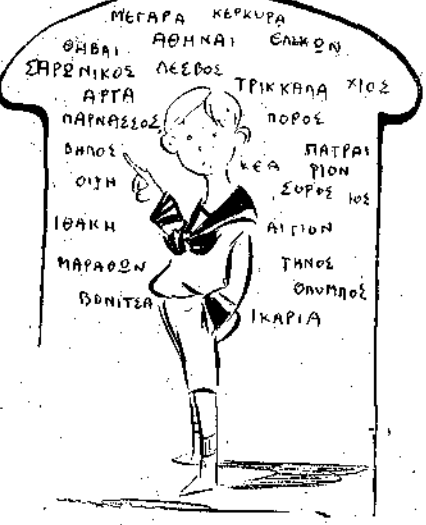 ΜΕΓΑΡΑ ΚΕΡΚΥΡΑ
ΘΗΒΑΙ ΑΘΗΝΑΙ ΕΛΙΚΩΝ
ΣΑΡΩΝΙΚΟΣ ΛΕΣΒΟΣ
ΤΡΙΚΚΑΛΑ ΧΙΟΣ
ΑΡΤΑ
ΠΑΡΝΑΣΣΟΣ ΠΟΡΟΣ
ΔΗΛΟΣ ΚΕΑ ΠΑΤΡΑΙ
ΡΙΟΝ
ΟΙΤΗ ΣΥΡΟΣ ΙΟΣ
ΙΘΑΚΗ ΑΙΓΙΟΝ
ΜΑΡΑΘΩΝ ΤΗΝΟΣ
ΟΛΥΜΠΟΣ
ΒΟΝΙΤΣΑ ΙΚΑΡΙΑ